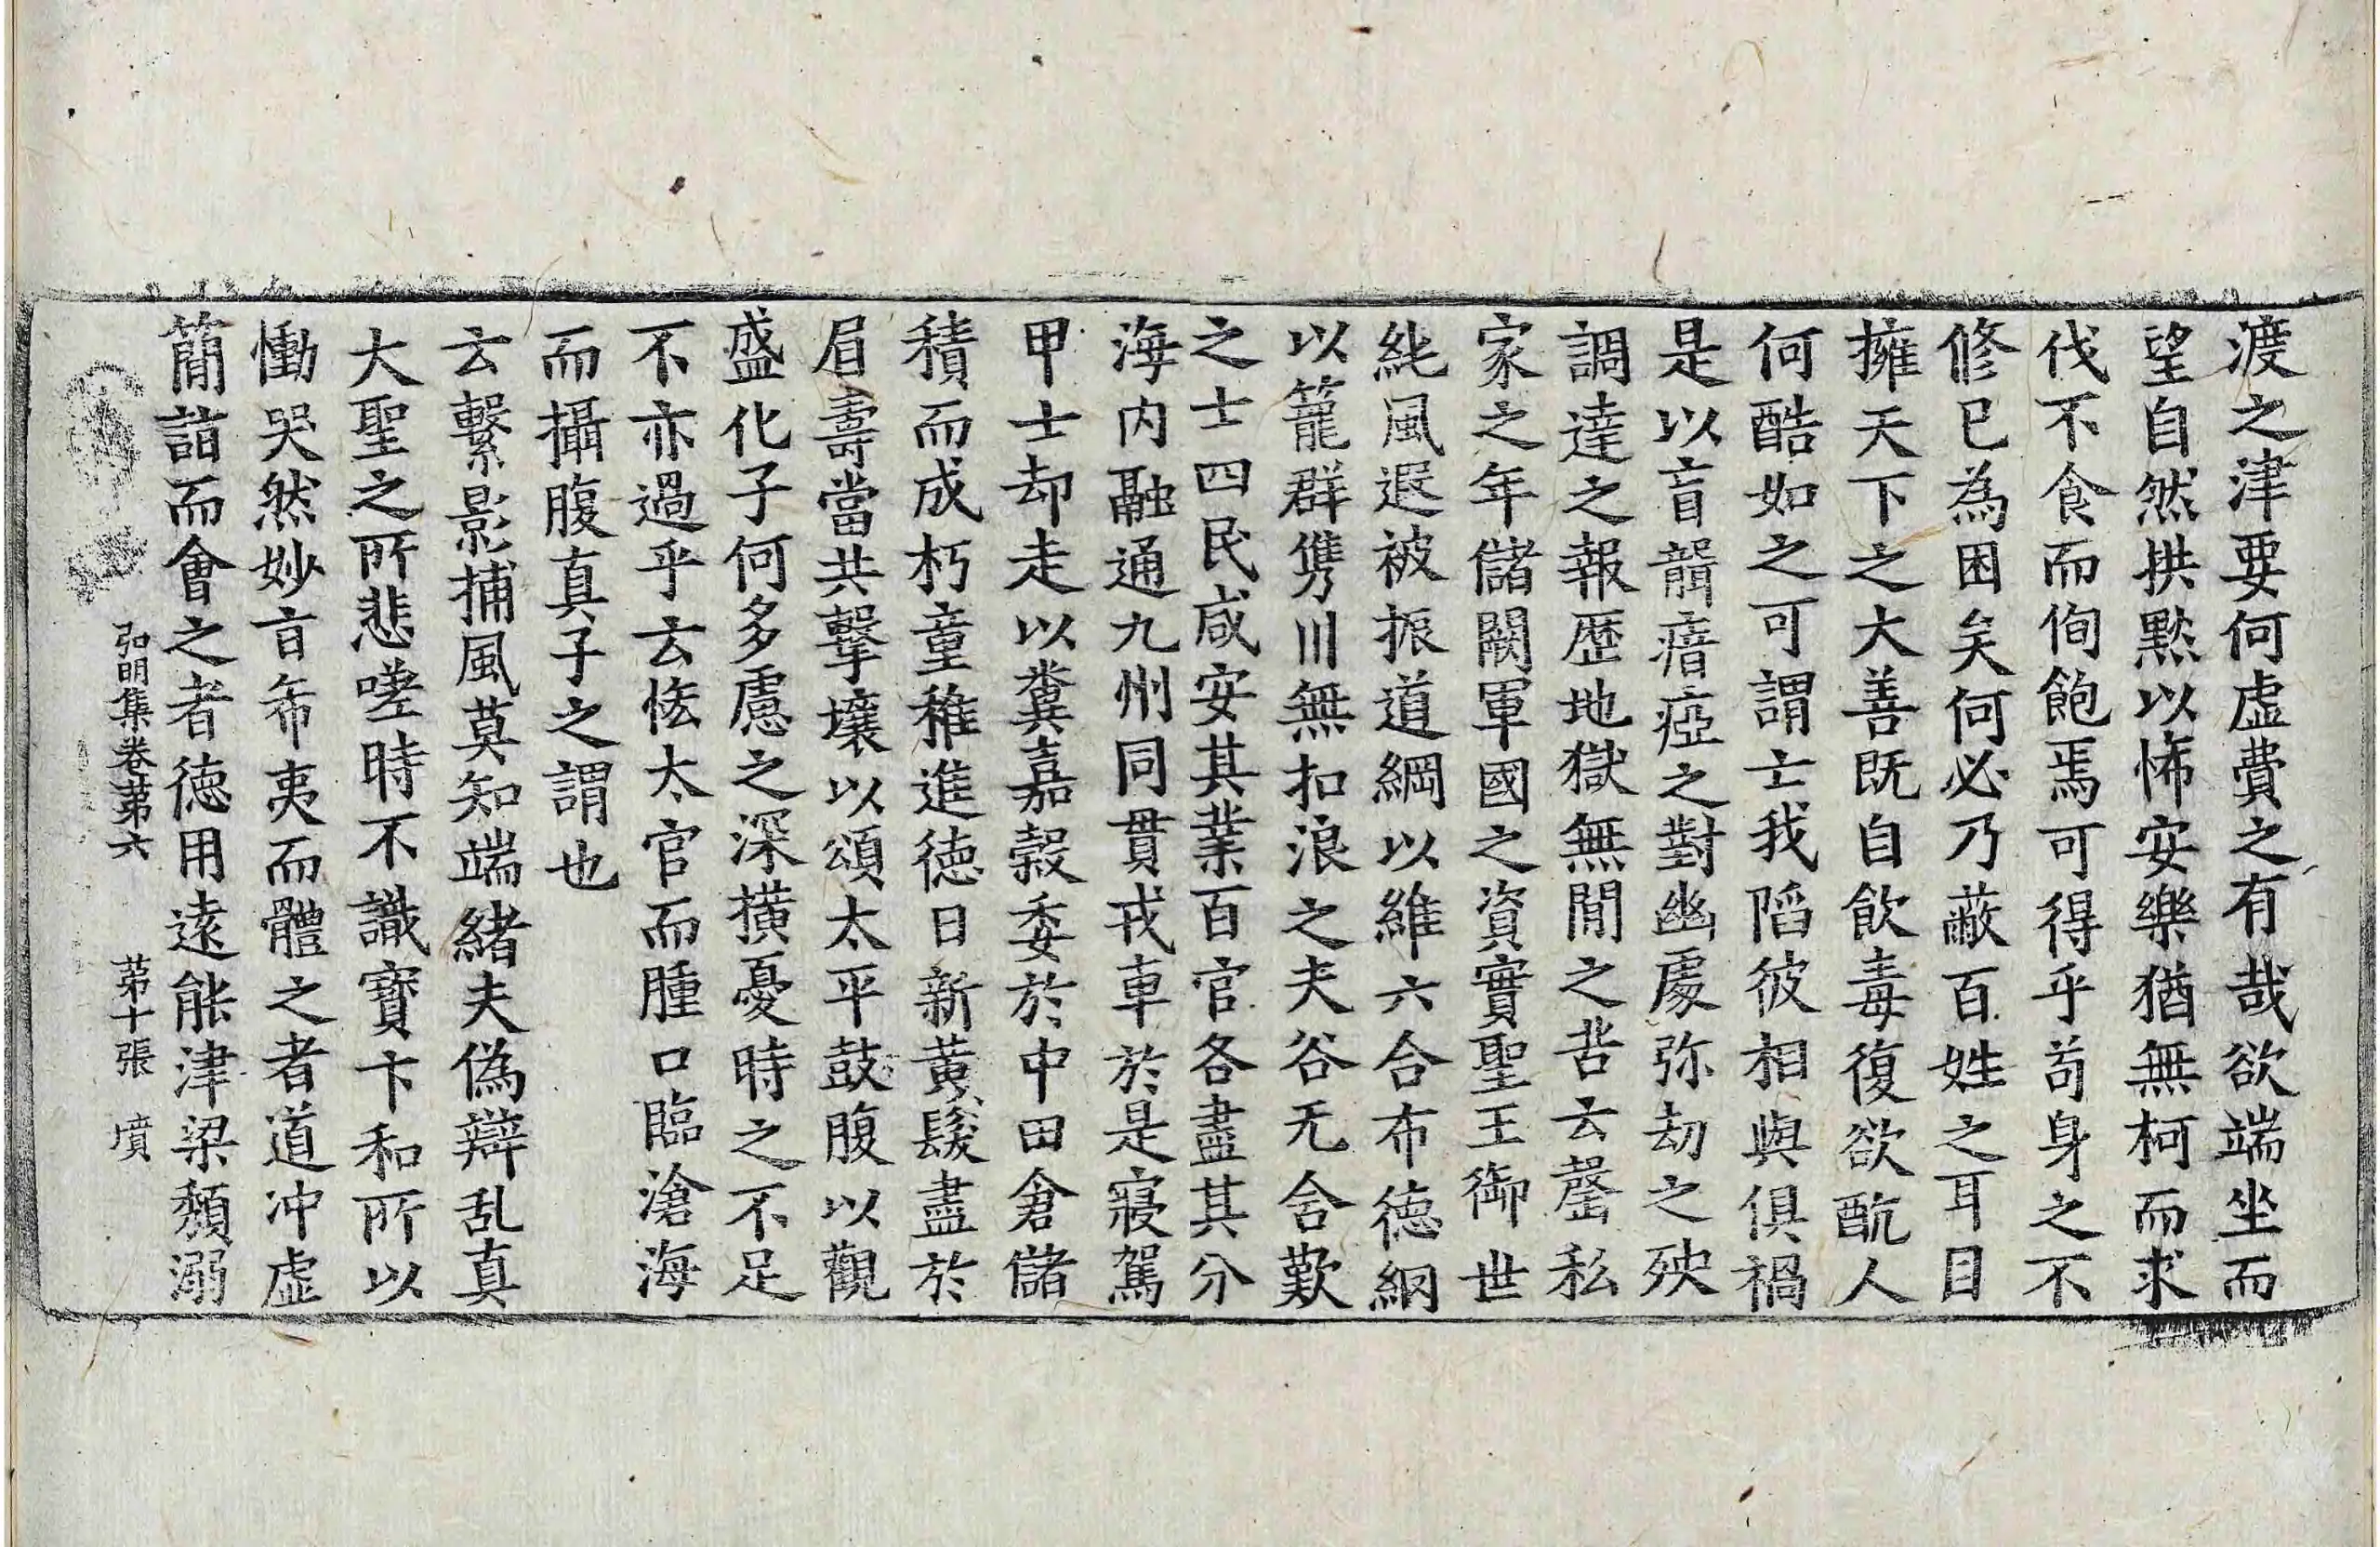 渡之津要何虛費之有哉欲端坐而
望自然拱黙以怖安樂猶無柯而求
伐不食而侚飽焉可得乎苟身之不
修已為困矣何必乃蔽百姓之耳目
擁天下之大善既自飲毒復欲酖人
何酷如之可謂士我陷彼相與俱禍
是以盲聾瘖瘂之對幽處弥劫之殃
調達之報歷地獄無間之苦云罄私
家之年儲闕軍國之資實聖王御世
純風遐被振道綱以維六合布德網
以籠群儁川無扣浪之夫谷无含歎
之士四民咸安其業百官各盡其分
海內融通九州同貫戎車於是寢駕
甲士却走以糞嘉穀委於中田倉儲
積而成朽童稚進德日新黃髮盡於
眉壽當共擊壤以頌太平鼓腹以觀
盛化子何多慮之深橫憂時之不足
不亦過乎云恡太官而腫口臨滄海
而攝腹真子之謂也
云繫影捕風莫知端緒夫偽辯乱真
大聖之所悲嗟時不識寶卞和所以
慟哭然妙旨希夷而體之者道沖虛
簡詣而會之者德用遠能津梁頹溺
弘明集卷苐六　苐十張　墳